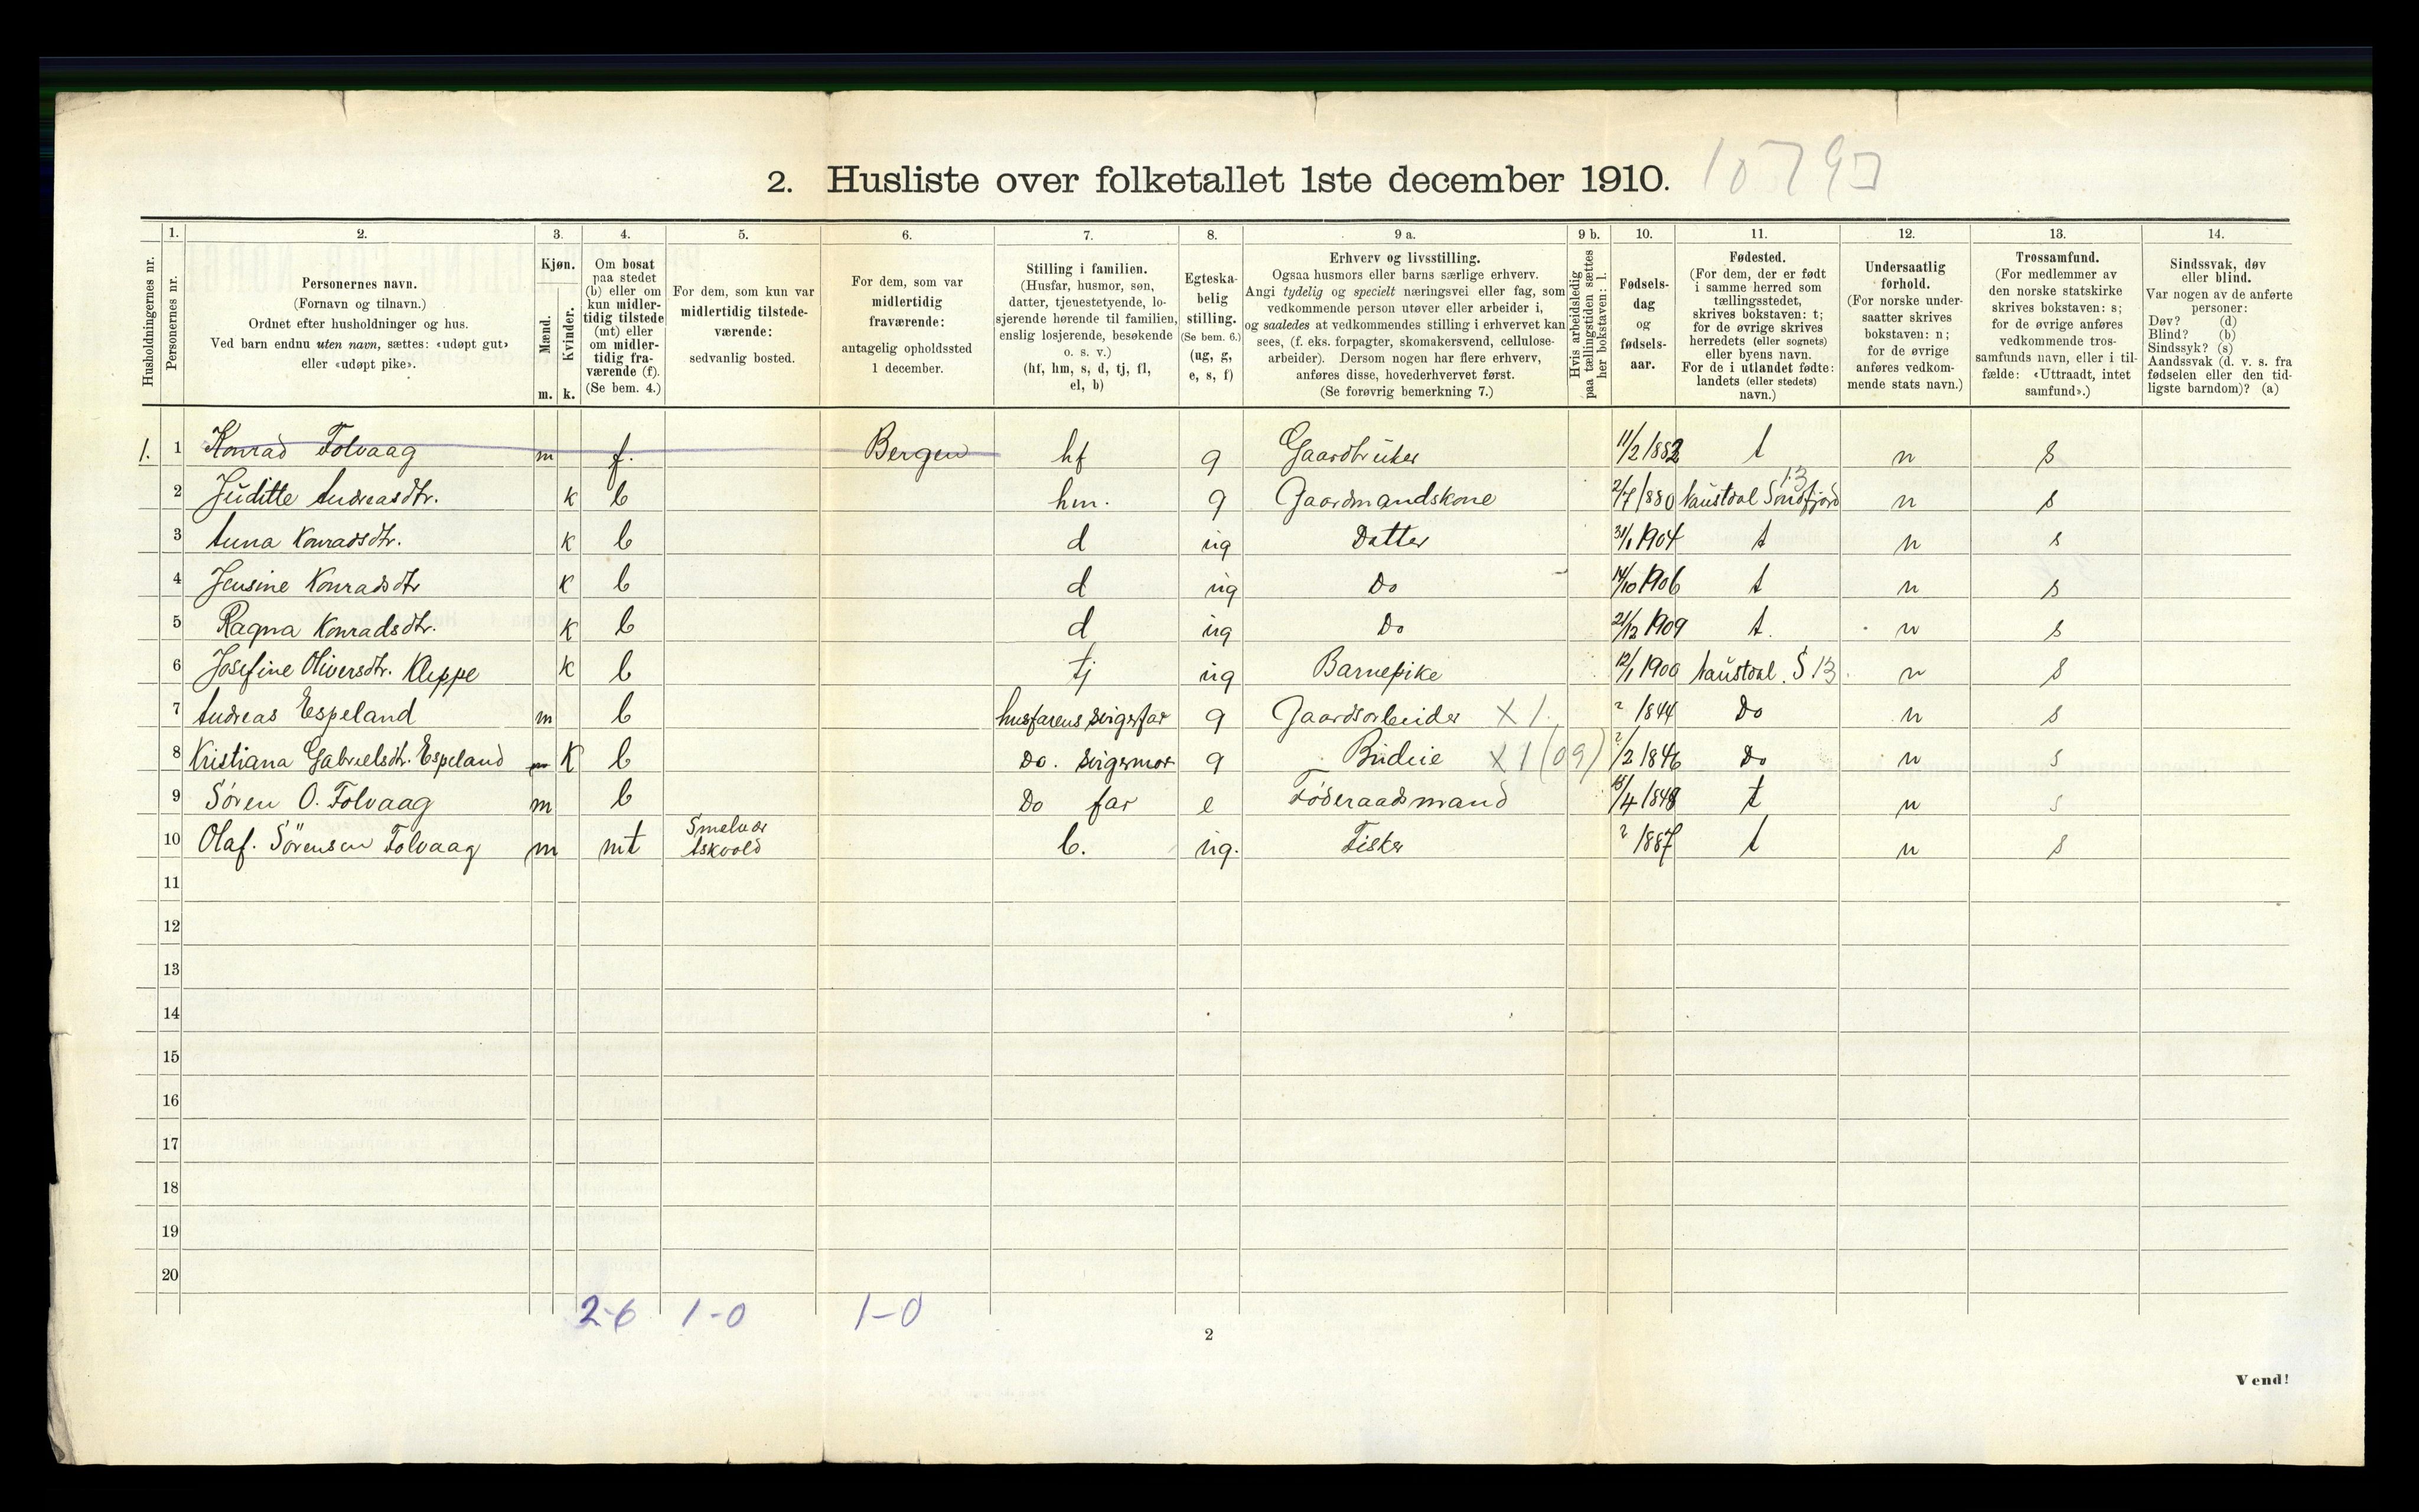 2. Husliste over folketallet 1ste december 1910.
1. 2. 3. 4. 5. 6. 7. 8. 9 a. 9 b. 10. 11. 12. 13. 14.
Husholdningernes nr.
Personernes nr.
Personernes navn.
(Fornavn og tilnavn.)
Ordnet efter husholdninger og hus.
Ved barn endnu uten navn, sættes: «udøpt gut»
eller «udøpt pike».
Kjøn.
Mænd.
Kvinder.
m. k.
Om bosat
paa stedet
(b) eller om
kun midler-
tidig tilstede
(mt) eller
om midler-
tidig fra-
værende (f).
(Se bem. 4.)
For dem, som kun var
midlertidig tilstede-
værende:
sedvanlig bosted.
For dem, som var
midlertidig
fraværende:
antagelig opholdssted
1 december.
Stilling i familien.
(Husfar, husmor, søn,
datter, tjenestetyende, lo-
sjerende hørende til familien,
enslig losjerende, besøkende
o. s. v.)
(hf, hm, s, d, tj, fl,
el, b)
Egteska-
belig
stilling.
(Se bem. 6.)
(ug, g,
e, s, f)
Erhverv og livsstilling.
Ogsaa husmors eller barns særlige erhverv.
Angi tydelig og specielt næringsvei eller fag, som
vedkommende person utøver eller arbeider i,
og saaledes at vedkommendes stilling i erhvervet kan
sees, (f. eks. forpagter, skomakersvend, cellulose-
arbeider). Dersom nogen har flere erhverv,
anføres disse, hovederhvervet først.
(Se forøvrig bemerkning 7.)
Hvis arbeidsledig
paa tællingstiden sættes
her bokstaven: l.
Fødsels-
dag
og
fødsels-
aar.
Fødested.
(For dem, der er født
i samme herred som
tællingsstedet,
skrives bokstaven: t;
for de øvrige skrives
herredets (eller sognets)
eller byens navn.
For de i utlandet fødte:
landets (eller stedets)
navn.)
Undersaatlig
forhold.
(For norske under-
saatter skrives
bokstaven: n;
for de øvrige
anføres vedkom-
mende stats navn.)
Trossamfund.
(For medlemmer av
den norske statskirke
skrives bokstaven: s;
for de øvrige anføres
vedkommende tros-
samfunds navn, eller i til-
fælde: «Uttraadt, intet
samfund».)
Sindssvak, døv
eller blind.
Var nogen av de anførte
personer:
Døv? (d)
Blind? (b)
Sindssyk? (s)
Aandssvak (d. v. s. fra
fødselen eller den tid-
ligste barndom)? (a)
1. 1 Konrad Folvaag m f. Bergen hf g Gaardbruker 11/2 1882 t n s
2 Juditte Andreasdtr. k b hm. g Gaardmandskone 2/7 1880 Naustdal Søndfjord 13 n s
3 Anna Konradsdtr. k b d ug Datter 31/1 1904 t n s
4 Jensine Konradsdtr k b d ug Do 14/10 1906 t n s
5 Ragna Konradsdtr. k b d ug Do 21/12 1909 t. n s
6 Josefine Oliversdtr. Kleppe k b tj ug Barnepike 12/1 1900 Naustdal. S 13 n s
7 Andreas Espeland m b husfarens svigerfar g Gaardsarbeider X 1. ? 1844 Do n s
8 Kristiana Gabrielsdtr. Espeland m K b Do. svigermor g Budeie X 1 (09) ?/2 1846 Do n s
9 Søren O. Folvaag m b Do far e Føderaadsmand /4 1848 t n s
10 Olaf. Sörensen Folvaag m mt Smelvær Askvold b. ug. Fisker ? 1887 t n s
11
12
13
14
15
16
17
18
19
20
2-6 1-0 1-0
2
Vend!